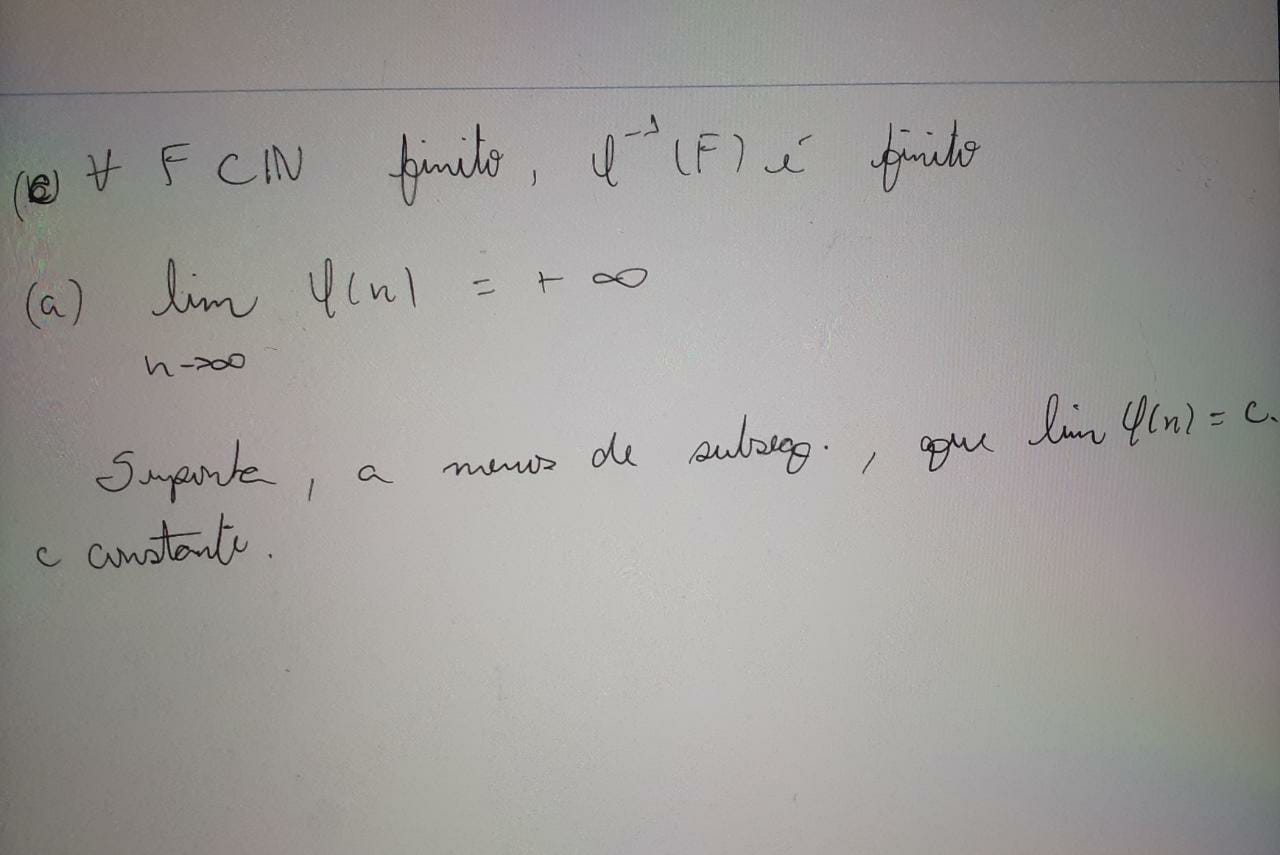 (c) ∀ F ⊂ ℕ finito, φ⁻¹(F) é finito
(a) lim φ(n) = + ∞
n→∞
Suponha, a menos de subseq., que lim φ(n) = c.
c constante.